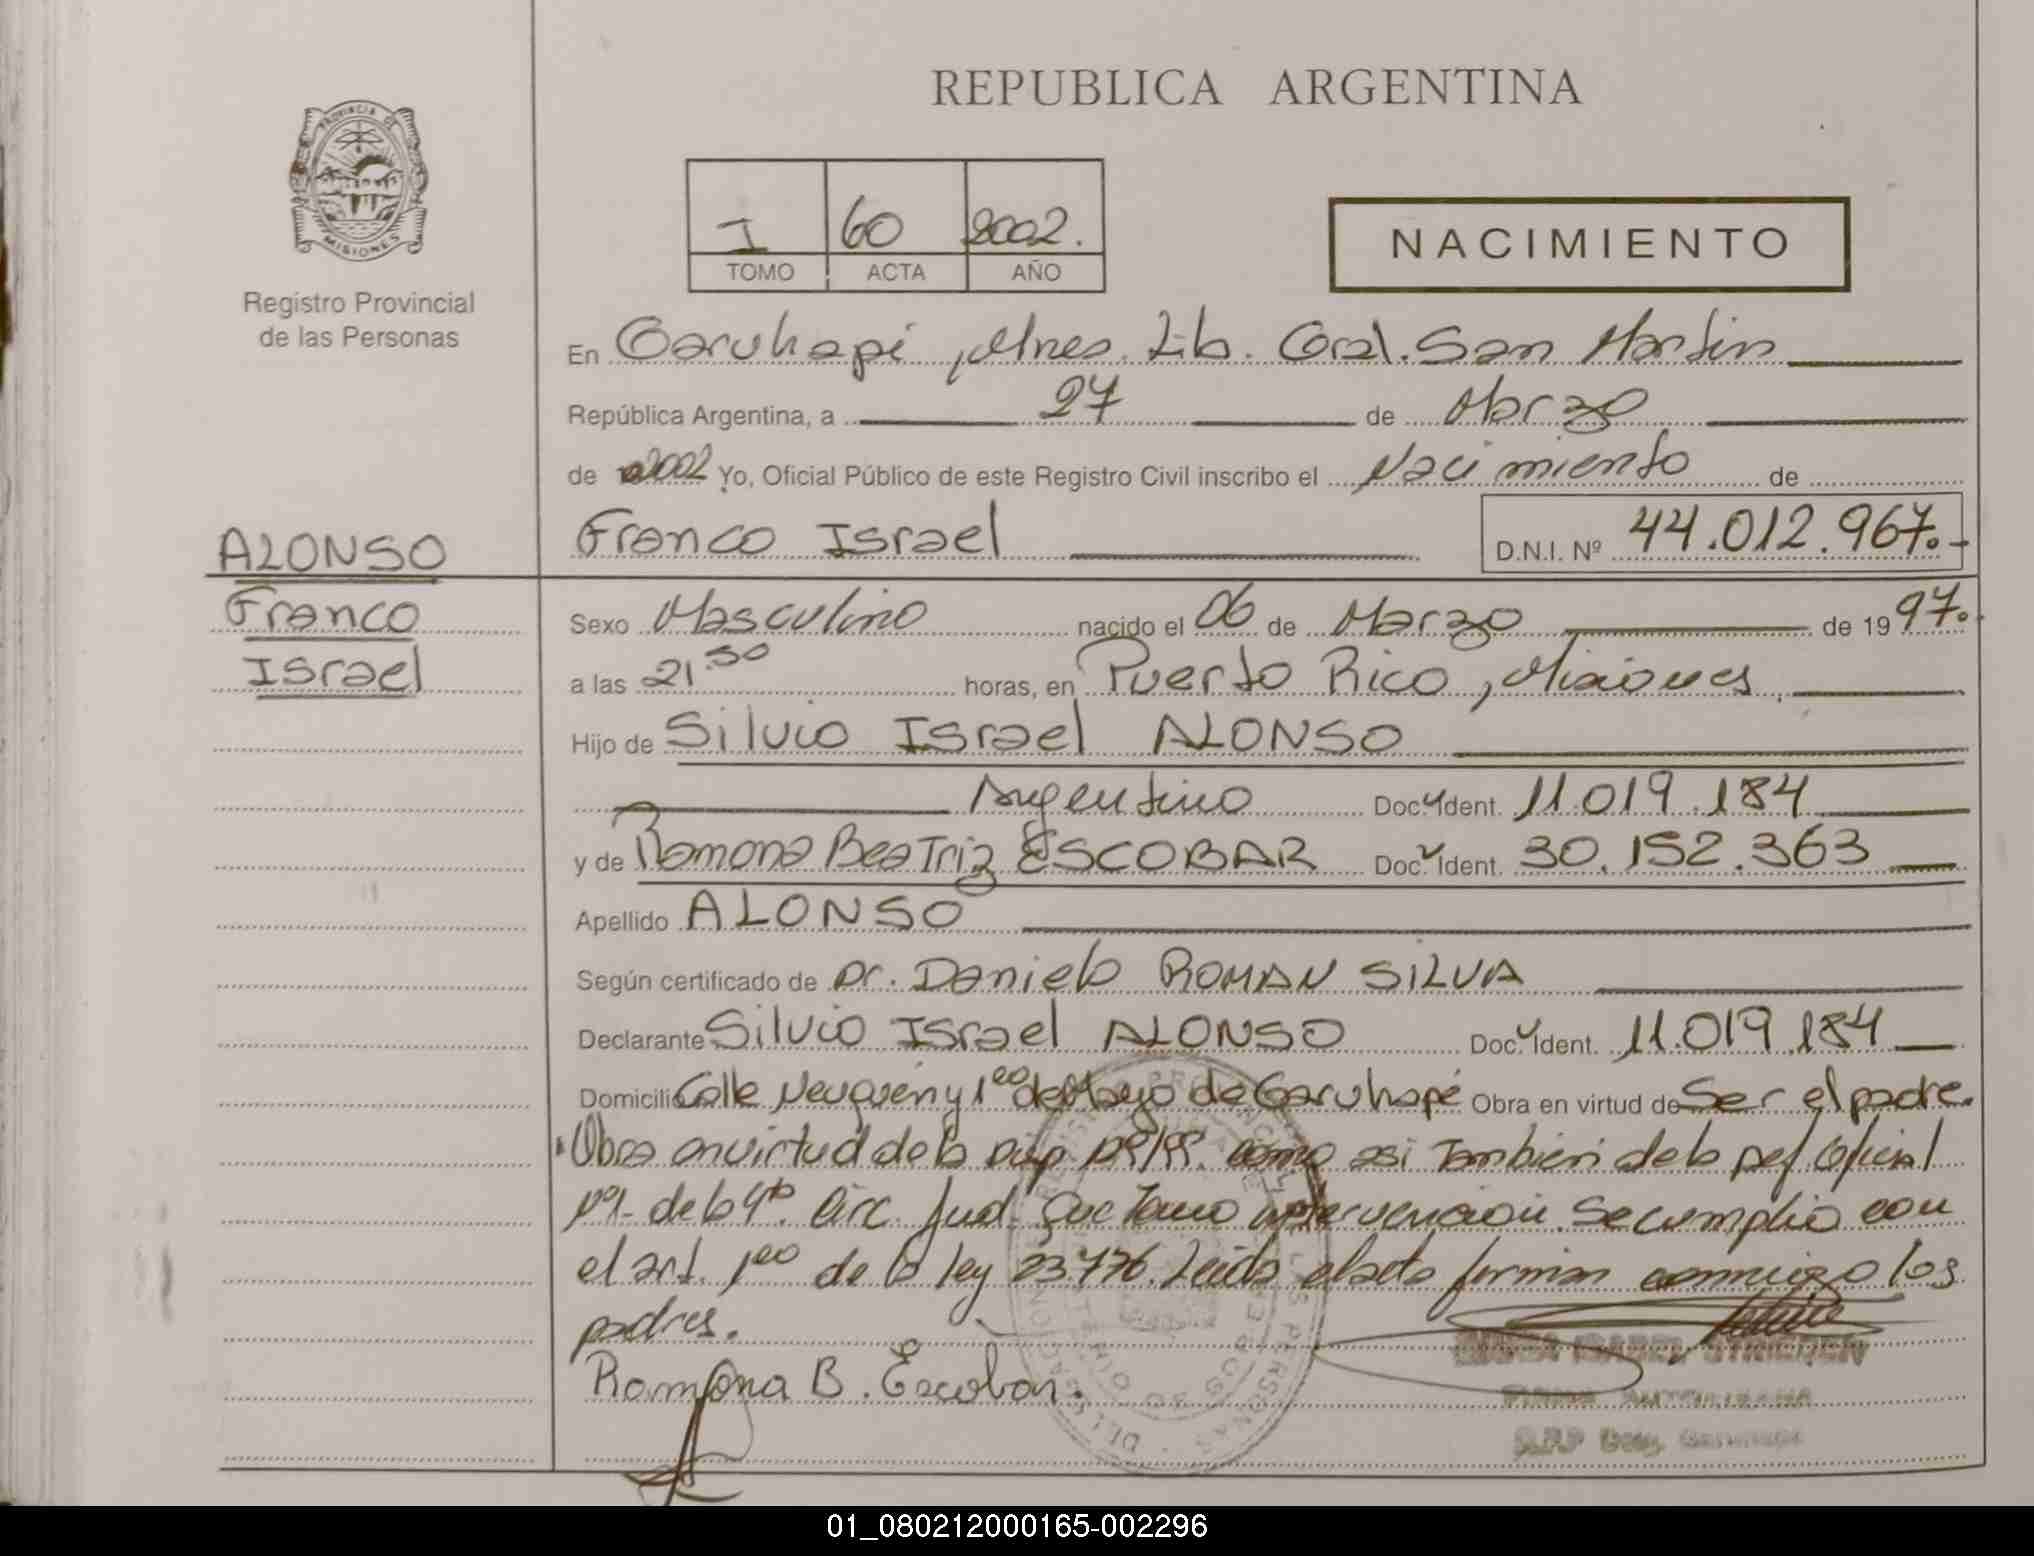 REPUBLICA ARGENTINA
PROVINCIA DE
MISIONES
Registro Provincial
de las Personas
I 60 2002.
TOMO ACTA AÑO
NACIMIENTO
En Garuhapé, Mnes. Lib. Gral. San Martin
República Argentina, a 27 de Marzo
de 2002 Yo, Oficial Público de este Registro Civil inscribo el Nacimiento de
ALONSO
Franco Israel D.N.I. Nº 44.012.967.-
Franco
Israel
Sexo Masculino nacido el 06 de Marzo de 1997.
a las 21:50 horas, en Puerto Rico, Misiones
Hijo de Silvio Israel ALONSO
Argentino Doc. Ident. 11.019.184
y de Ramona Beatriz ESCOBAR Doc. Ident. 30.152.363
Apellido ALONSO
Según certificado de Dr. Daniel ROMAN SILVA
Declarante Silvio Israel ALONSO Doc. Ident. 11.019.184
Domicilio Calle Neuquén y 1ero de Mayo de Garuhapé Obra en virtud de Ser el padre.
Obra en virtud de la como asi Tambien de la Def. Oficial
Nº1 de la 4ta. Circ. Jud. Que Tomo intervencion. Se cumplio con
el art. 1ero de la ley 23.776. Leida el acta firman conmigo los
padres.
Ramona B. Escobar.
ISABEL
FIRMA AUTORIZADA
R.P.P Garuhape
01_080212000165-002296